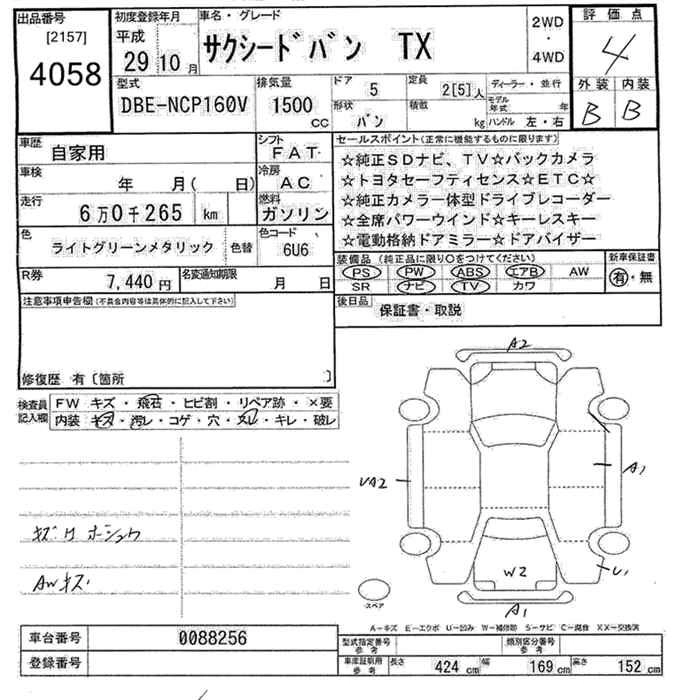 出品番号 初度登録年月 車名・グレード 2WD 評価点
[2157] 平成 サクシードバン TX ・ 4
4058 29年10月 4WD
型式 排気量 ドア 5 定員 2[5]人 ディーラー・並行 外装 内装
DBE-NCP160V 1500cc 形状 バン 積載 kg モデル年式 年 ハンドル 左・右 B B
車歴 自家用 シフト FAT セールスポイント(正常に機能するものに限ります)
車検 年 月( 日) 冷房 AC ☆純正SDナビ、TV☆バックカメラ
☆トヨタセーフティセンス☆ETC☆
走行 6万0千265 km 燃料 ガソリン ☆純正カメラ一体型ドライブレコーダー
☆全席パワーウインド☆キーレスキー
色 ライトグリーンメタリック 色替 色コード 6U6 ☆電動格納ドアミラー☆ドアバイザー
R券 7,440円 名変通知期限 月 日 装備品(純正品に限り○をつけてください) 新車保証書
PS PW ABS エアB AW 有・無
SR ナビ TV カワ
注意事項申告欄(不具合内容等は具体的に記入して下さい) 後日品 保証書・取説
修復歴 有〔箇所 〕
検査員記入欄 FW キズ・飛石・ヒビ割・リペア跡・×要
内装 キズ・汚レ・コゲ・穴・スレ・キレ・破レ
A2
UA2 A1
キズ ホシュウ
AWキズ W2 U1
スペア A1
A-キズ E-エクボ U-凹み W-補修跡 S-サビ C-腐食 XX-交換済
車台番号 0088256 型式指定番号 参考 類別区分番号 参考
登録番号 車庫証明用 参考 長さ 424cm 幅 169cm 高さ 152cm